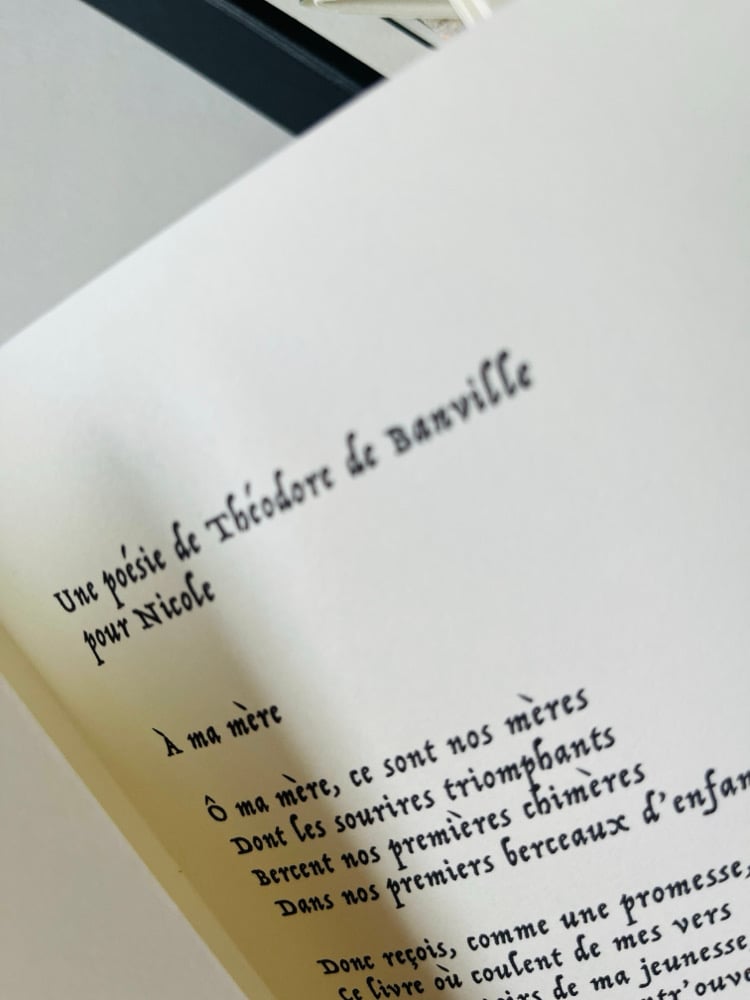 Une poésie de Théodore de Banville
pour Nicole
À ma mère
Ô ma mère, ce sont nos mères
Dont les sourires triomphants
Bercent nos premières chimères
Dans nos premiers berceaux d'enfan
Donc reçois, comme une promesse,
Ce livre où coulent de mes vers
de ma jeunesse